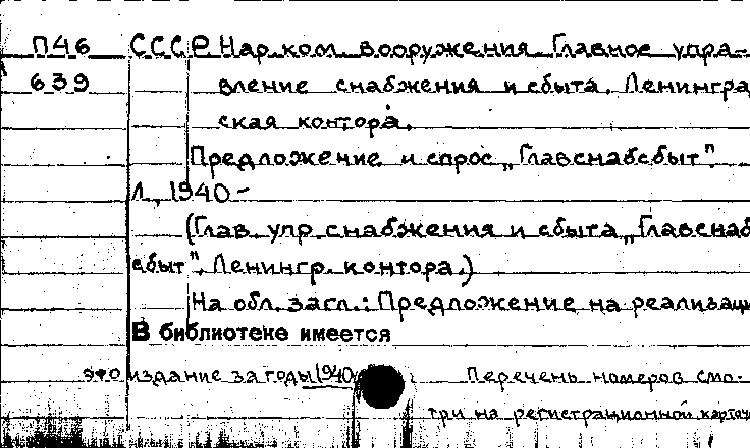 П46 СССР Нар. ком. вооружения. Главное упра-
639 вление снабжения и сбыта. Ленингра
ская контора.
Предложение и спрос „Главснабсбыт".
Л., 1940-
(Глав. упр. снабжения и сбыта „Главснаб
сбыт". Ленингр. контора.)
На обл. загл.: Предложение на реализаци
В библиотеке имеется
это издание за годы 1940 Перечень номеров смо-
три на регистрационной карточ